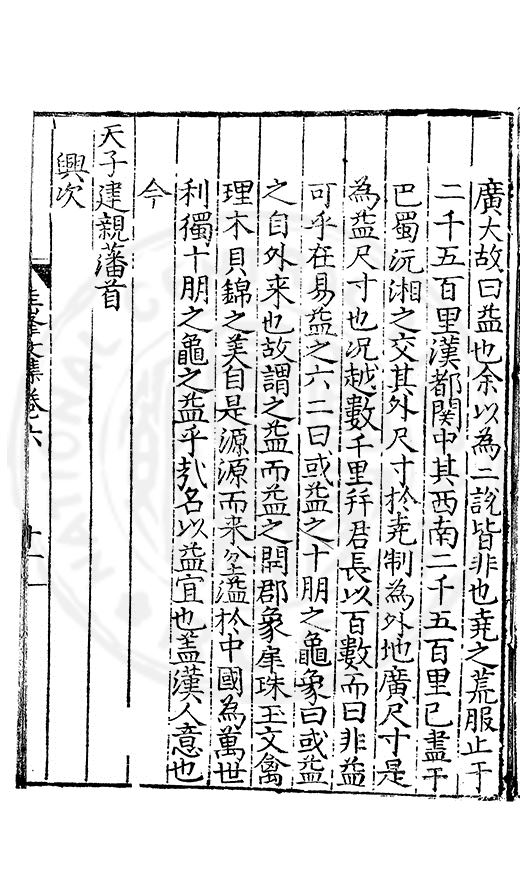 廣大故曰益也余以為二說皆非也堯之荒服止于
二千五百里漢都関中其西南二千五百里已盡于
巴蜀沅湘之交其外尺寸扵堯制為外地廣尺寸是
為益尺寸也况越數千里并君長以百數而曰非益
可乎在易益之六二曰或益之十朋之龜象曰或益
之自外来也故謂之益而益之開郡象犀珠玉文禽
理木貝錦之美自是源源而来坌溢扵中國為萬世
利獨十朋之龜之益乎㢤名以益宜也盖漢人意也
今
天子建親藩首
興次
圭峯文集卷六
十一